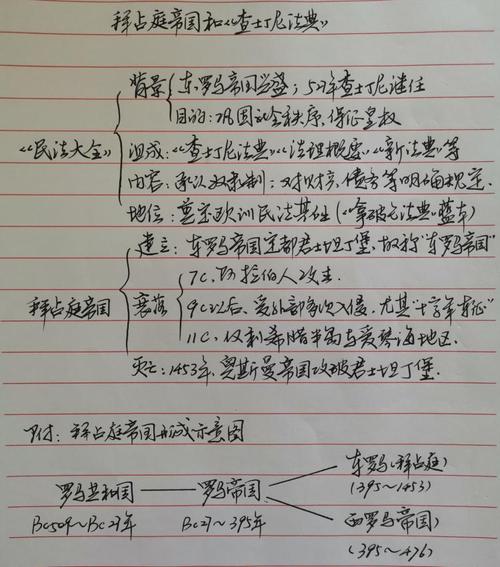 拜占庭帝国和《查士丁尼法典》
背景 东罗马帝国兴盛；527年查士丁尼继任
目的：巩固社会秩序，保证皇权
《民法大全》 组成：《查士丁尼法典》《法理概要》《新法典》等
内容：承认奴隶制；对财产、债务等明确规定.
地位：奠定欧洲民法基础（《拿破仑法典》蓝本）
建立：东罗马帝国定都君士坦丁堡，故称"东罗马帝国"
7C，阿拉伯人攻击.
拜占庭帝国 衰落 9C以后，受外部多次入侵，尤其"十字军东征"
11C，仅剩希腊半岛与爱琴海地区.
灭亡：1453年，奥斯曼帝国攻破君士坦丁堡.
附：拜占庭帝国形成示意图
东罗马（拜占庭）
(395～1453)
罗马共和国 —— 罗马帝国
西罗马帝国)
BC509～BC27年 BC27～395年
(395～476)